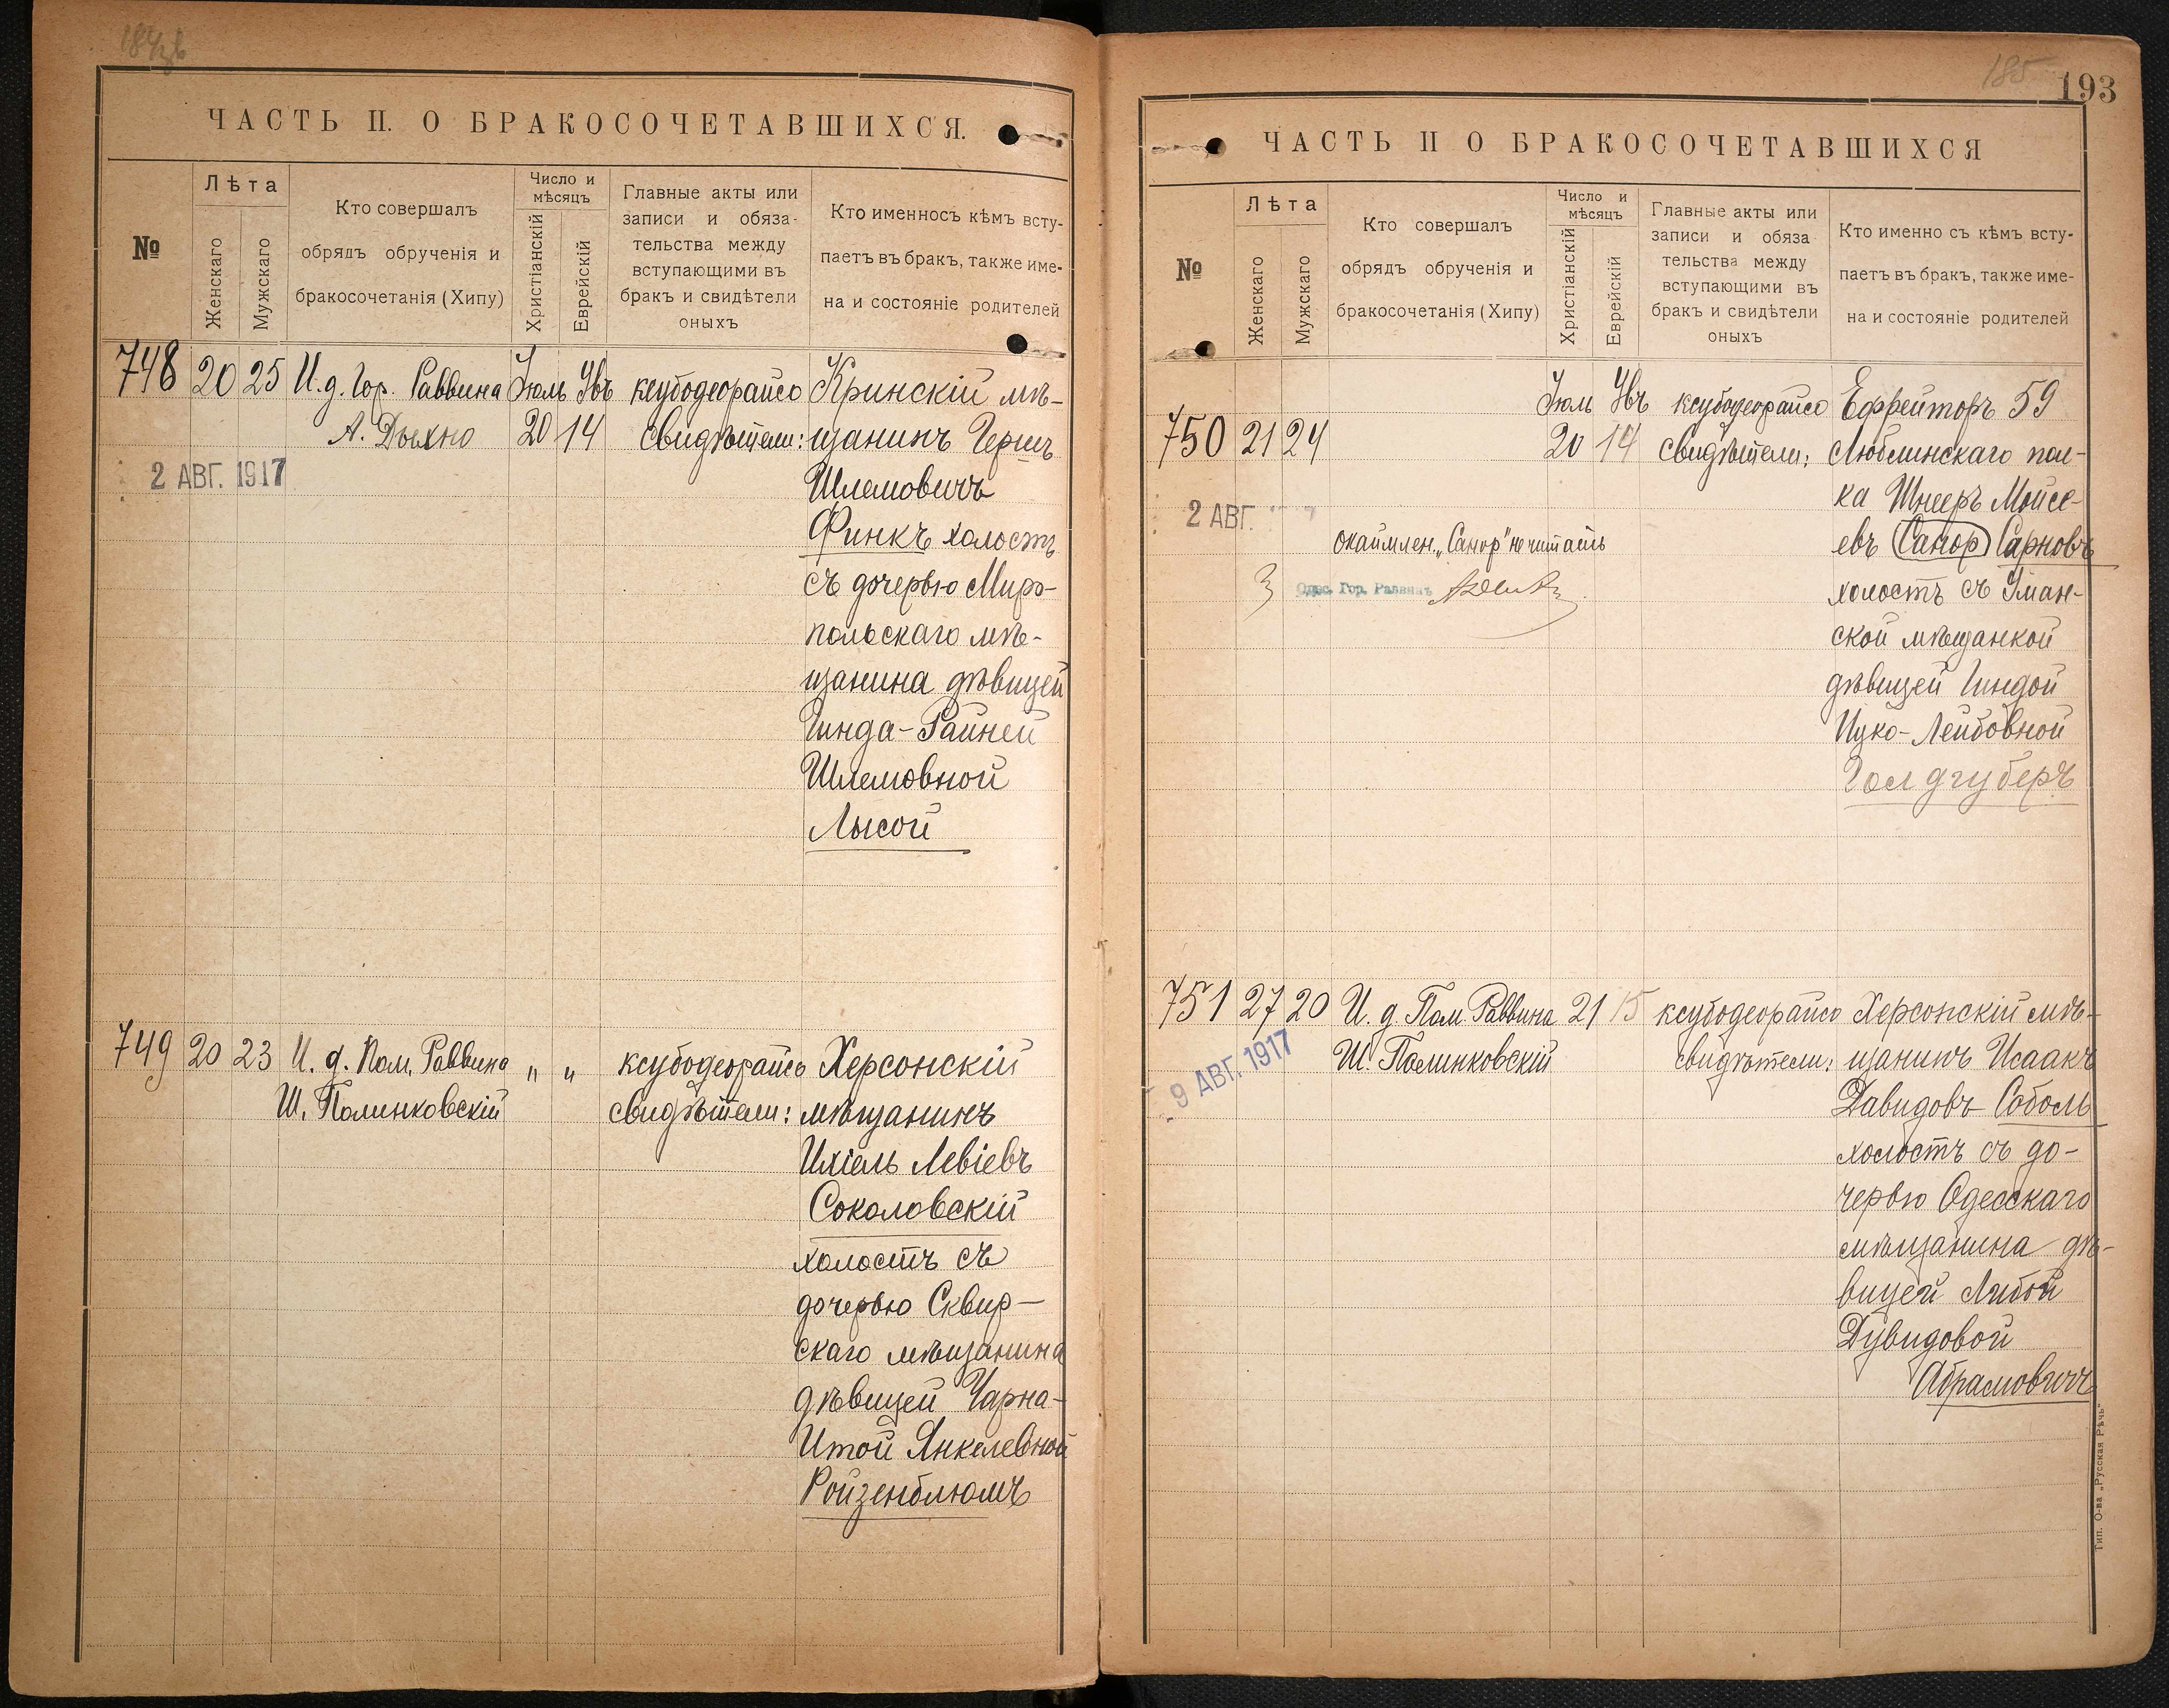 ЧАСТЬ II. О БРАКОСОЧЕТАВШИХСЯ.
№
Лѣта
Женскаго
Мужскаго
Кто совершалъ
обрядъ обрученія и
бракосочетанія (Хипу)
Число и
мѣсяцъ
Христіанскій
Еврейскій
Главные акты или
записи и обяза-
тельства между
вступающими въ
бракъ и свидѣтели
оныхъ
Кто именносъ кѣмъ всту-
паетъ въ бракъ, также име-
на и состояніе родителей
748 20 25 И. д. Гор. Раввина Іюль Увъ ксубодеорайсо Кринскій мѣ-
20 14 свидѣтели: щанинъ Гершъ
2 АВГ. 1917
Шлемовичъ
Финкъ холостъ
съ дочерью Миро-
польскаго мѣ-
щанина дѣвицей
Гинда-Райней
Шлемовной
Лысой
749 20 23 И. д. Пом. Раввина " " ксубодеорайсо Херсонскій
Ш. Полинковскій свидѣтели: мѣщанинъ
Ихіель Левіевъ
Соколовскій
холостъ съ
дочерью Сквир-
скаго мѣщанина
дѣвицей Чарна-
Итой Янкелевной
Ройзенблюмъ
185
193
ЧАСТЬ II О БРАКОСОЧЕТАВШИХСЯ
№
Лѣта
Женскаго
Мужскаго
Кто совершалъ
обрядъ обрученія и
бракосочетанія (Хипу)
Число и
мѣсяцъ
Христіанскій
Еврейскій
Главные акты или
записи и обяза
тельства между
вступающими въ
бракъ и свидѣтели
оныхъ
Кто именно съ кѣмъ всту-
паетъ въ бракъ, также име-
на и состояніе родителей
Іюль Увъ ксубодеорайсо Ефрейторъ 59
750 21 24 20 14 свидѣтели: Люблинскаго пол-
ка Шнееръ Мойсе-
2 АВГ.
окаймлен. „Санор" не читать евъ Санор Сарновъ
Одес. Гор. Раввинъ холостъ съ Уман-
ской мѣщанкой
дѣвицей Гиндой
Ицко-Лейбовной
Голдгуберъ
751 27 20 И. д. Пом. Раввина 21 15 ксубодеорайсо Херсонскій мѣ-
Ш. Полинковскій свидѣтели: щанинъ Исаакъ
9 АВГ. 1917
Давидовъ Соболь
холостъ съ до-
черью Одесскаго
мѣщанина дѣ-
вицей Либой
Дувидовой
Абрамовичъ
Тип. О-ва „Русская Рѣчь"